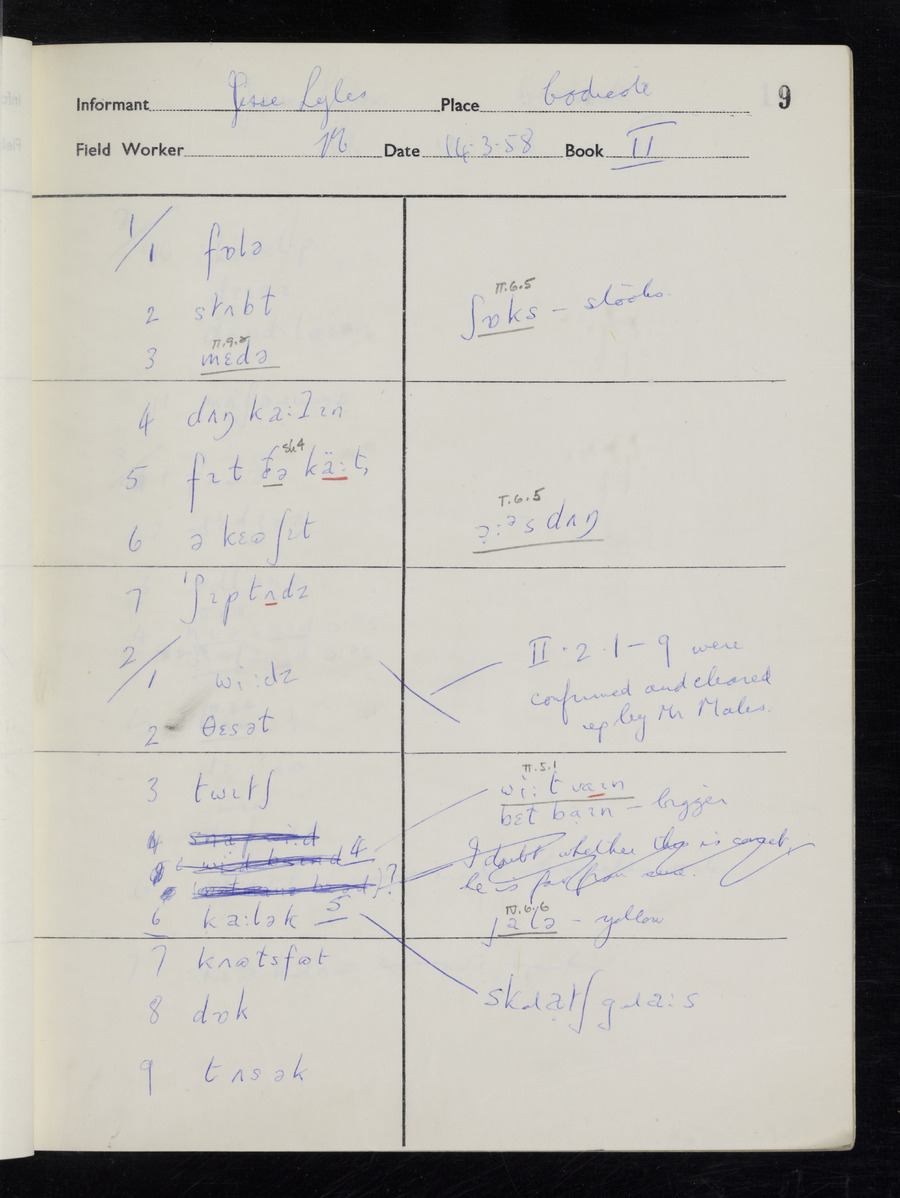 Informant Jesse Lyles Place Bodicote 9
Field Worker Date 14.3.58 Book II
1/1 fɒlə
2 stʌbt
3 mɛdə
II.9.2
4 dʌŋ kaːɹɪn
5 fɪt ðə käːt,
sh4
6 ə kɛʊʃɪt
7 'ʃɪptʌdɪ
2/1 wiːdz
2 θɛsət
3 twɪtʃ
4
6 kaːlək 5
7 knʊtsfʊt
8 dɒk
9 tʌsək
II.6.5
ʃɒks – stooks
I.6.5
ɔːᵊs dʌŋ
II.2.1–9 were
confirmed and cleared
up by Mr Males.
II.5.1
wiːt vaɪn
bɛt baɪn – bigger
I doubt whether this is correct,
he is far from sure.
IV.6.6
jalə – yellow
skɹatʃ gɹaːs